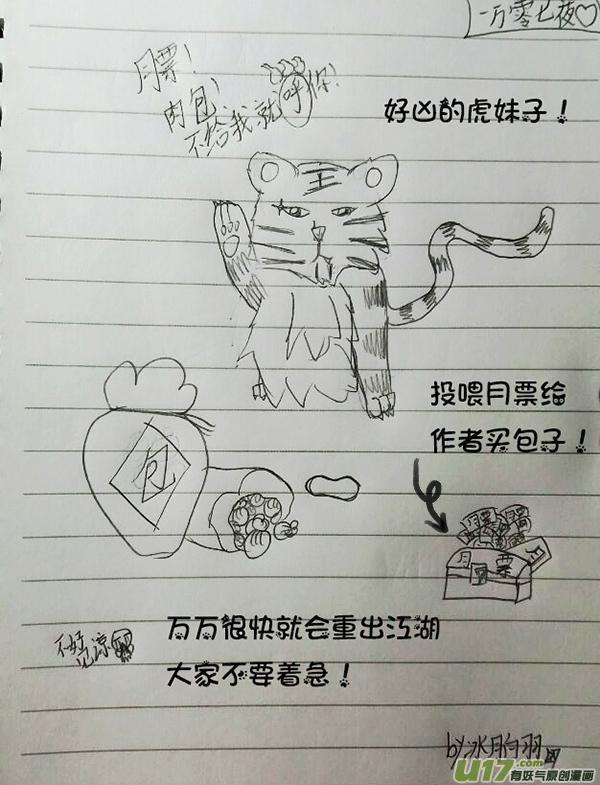 一万零七夜♡
月票！
肉包！
不给我就呼你！
好凶的虎妹子！
王
投喂月票给
作者买包子！
包
月票
万万很快就会重出江湖
大家不要着急！
by冰月白羽
U17.com
有妖气原创漫画